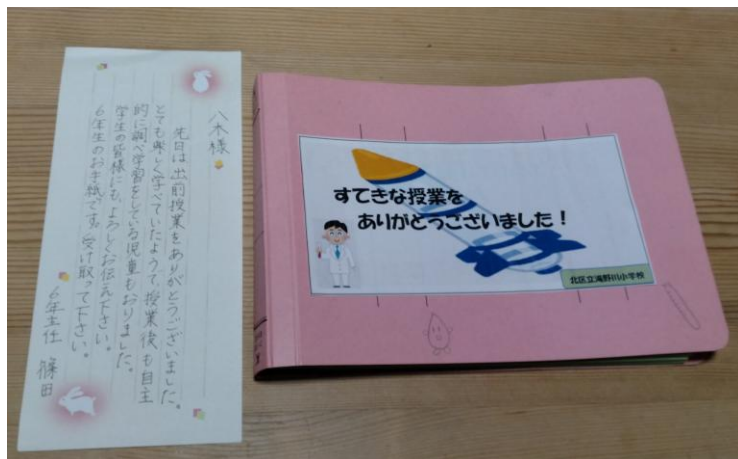 八木様
先日は出前授業をありがとうございました。
とても楽しく学べていたようで、授業後も自主
的に調べ学習をしている児童もおりました。
学生の皆様にも、よろしくお伝え下さい。
6年生のお手紙です。受け取って下さい。
6年主任 篠田
すてきな授業を
ありがとうございました！
北区立滝野川小学校